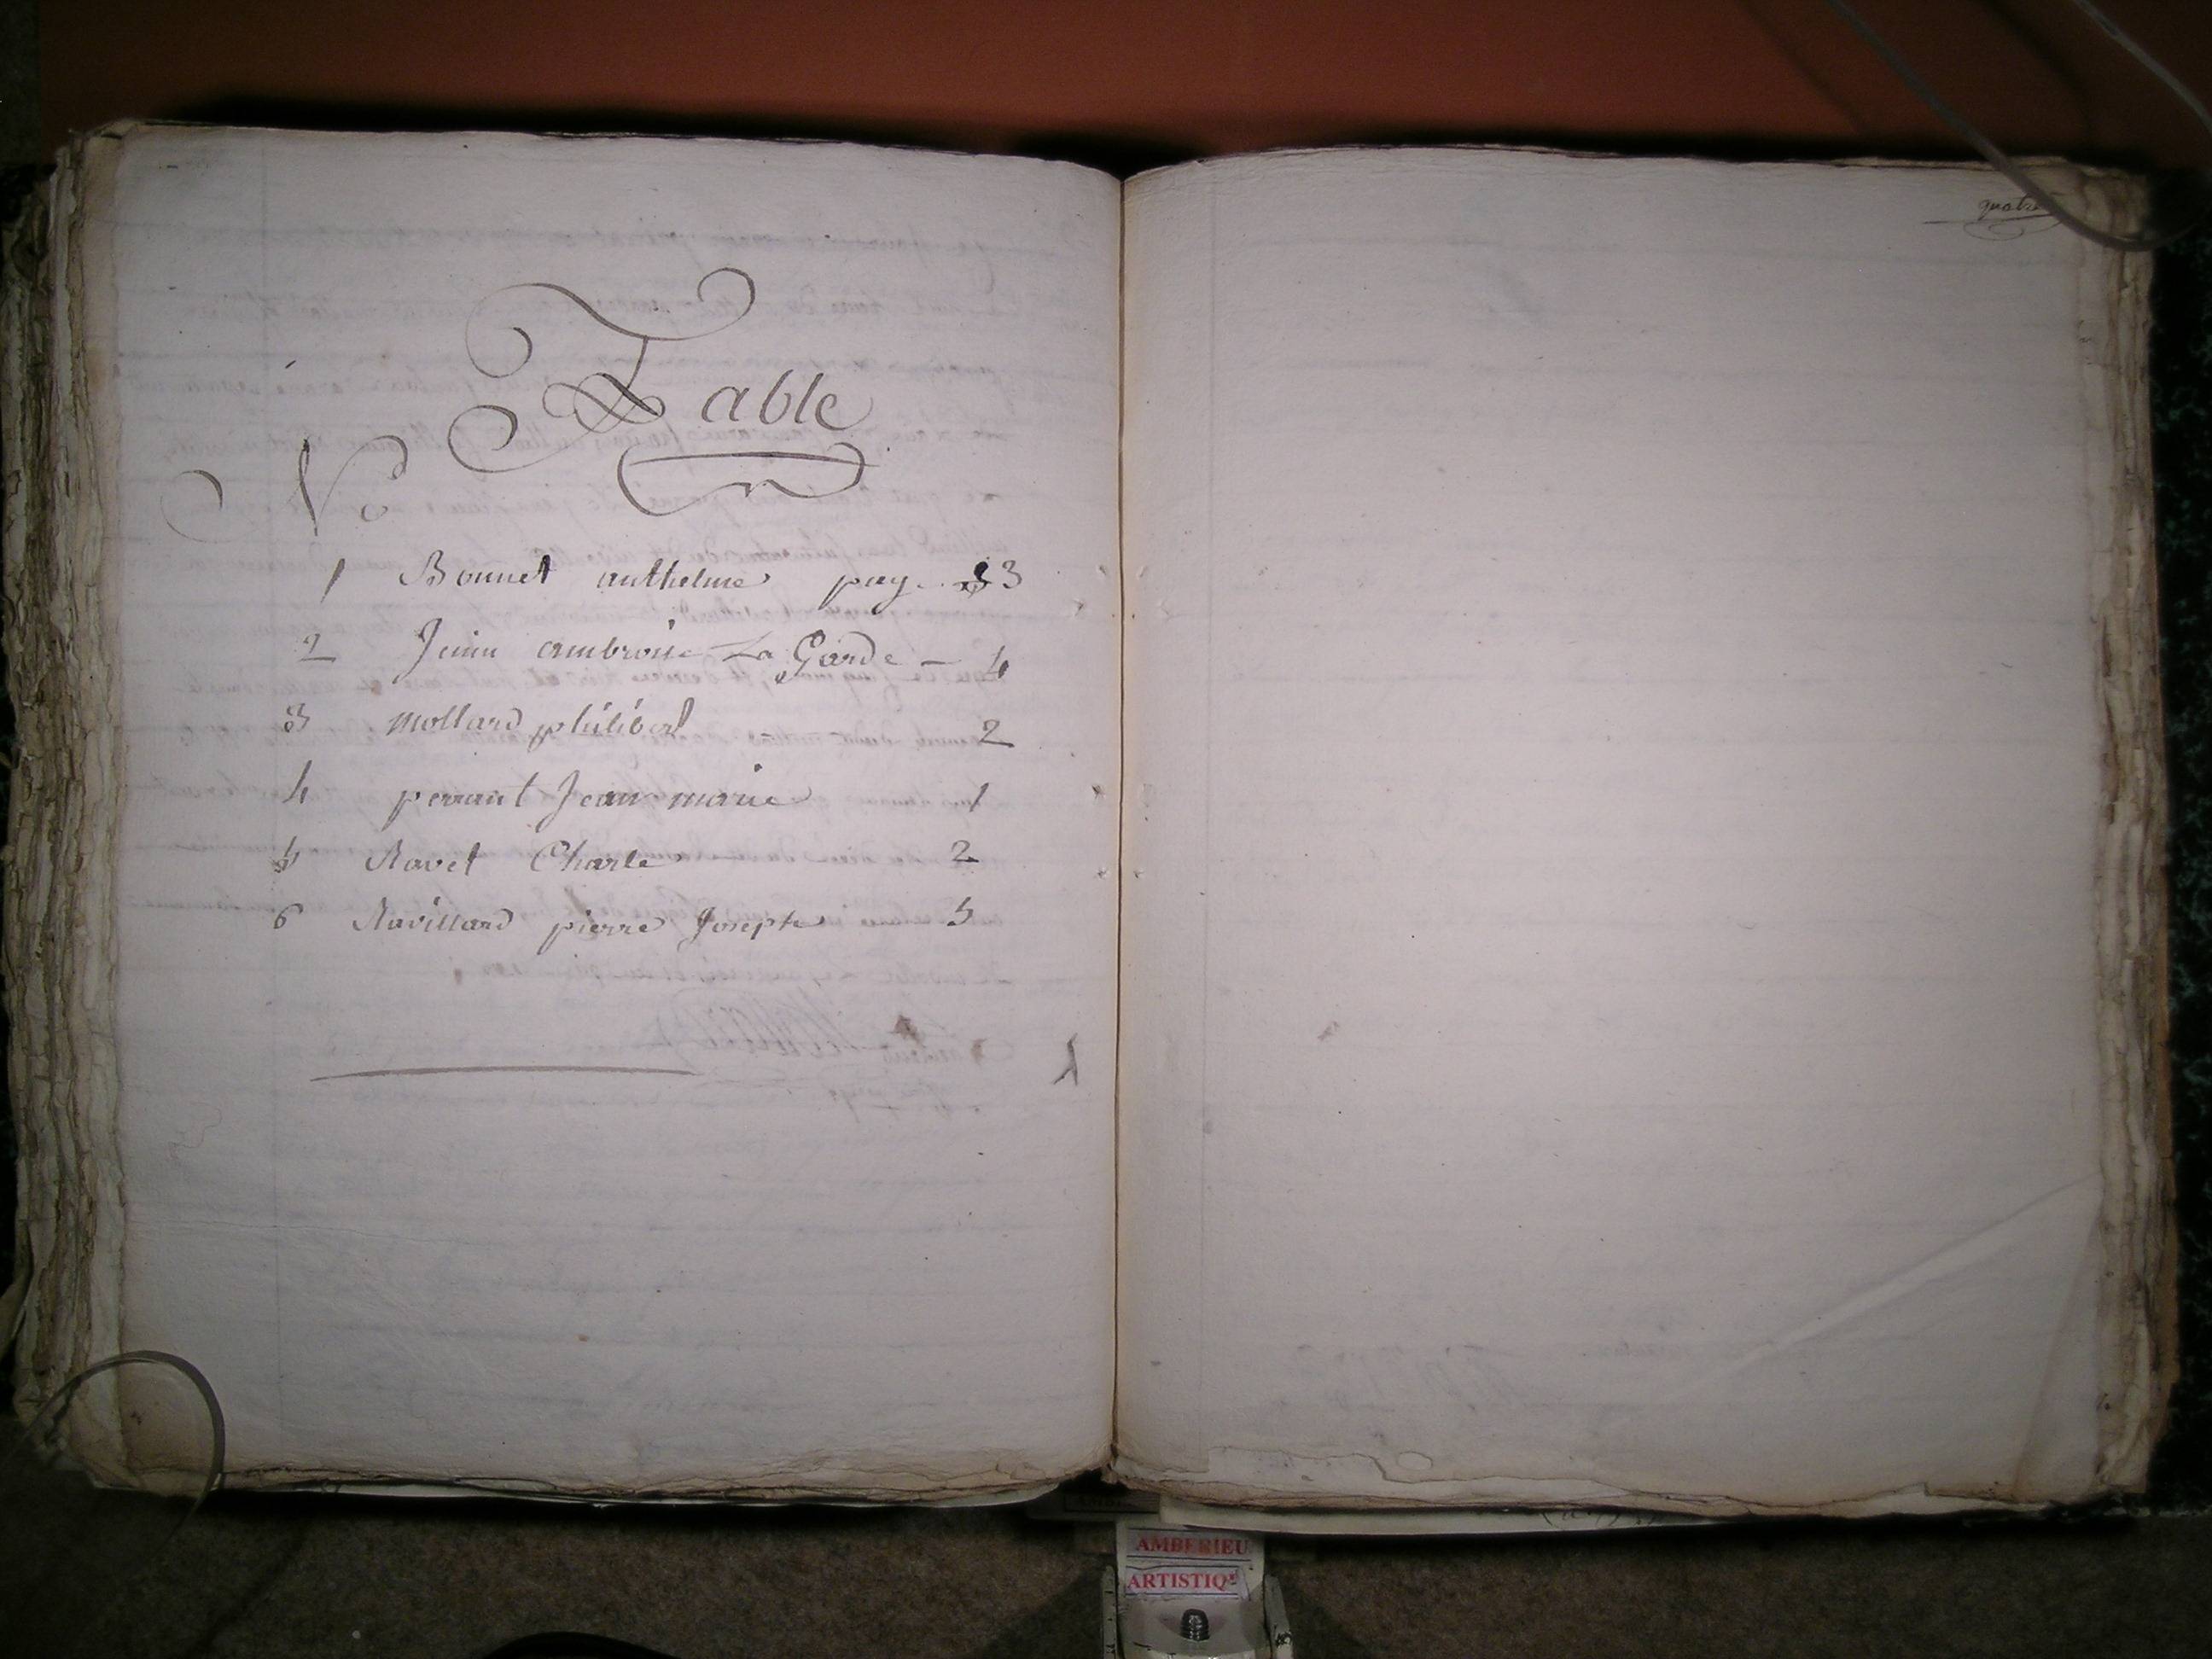 Table
No
1 Bonnet anthelme pag. 3
2 Juin ambroise La Garde - 4
3 mollard philibert 2
4 perrant Jean marie 1
5 Ravet Charle 2
6 Ravillard pierre Joseph 5
quatre
AMBERIEU
ARTISTIQ